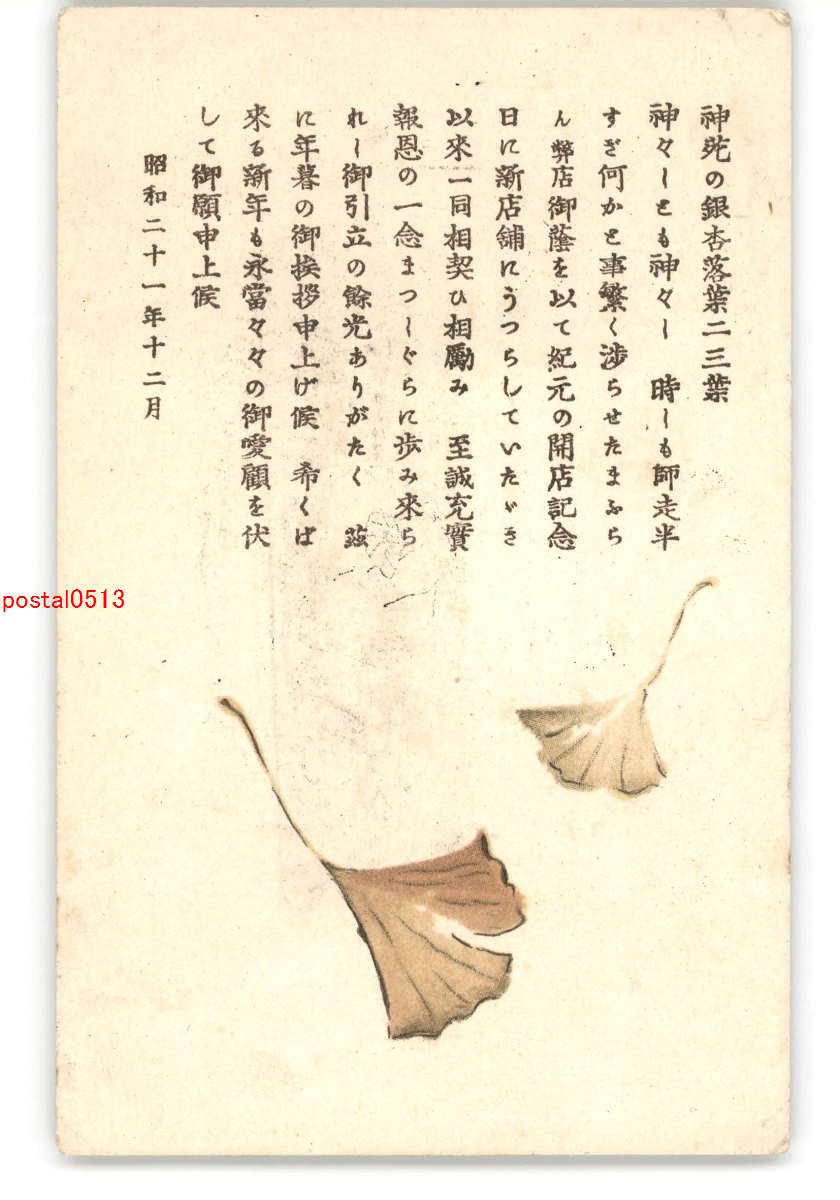 神苑の銀杏落葉二三葉
神々しとも神々し　時しも師走半
すぎ何かと事繁く渉らせたまふら
ん　弊店御蔭を以て紀元の開店記念
日に新店舗にうつらしていたゞき
以來一同相契ひ相勵み　至誠充實
報恩の一念まつしぐらに歩み來ら
れし御引立の餘光ありがたく　茲
に年暮の御挨拶申上げ候　希くば
來る新年も永當々々の御愛顧を伏
して御願申上候
昭和二十一年十二月
postal0513